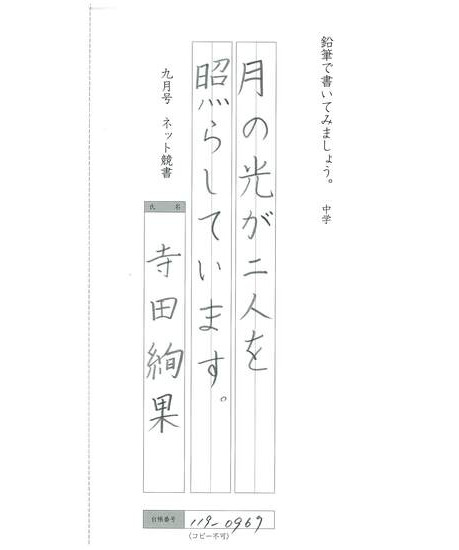 鉛筆で書いてみましょう。 中学
月の光が二人を
照らしています。
九月号 ネット競書
氏 名
寺田絢果
台帳番号 119-0967
(コピー不可)